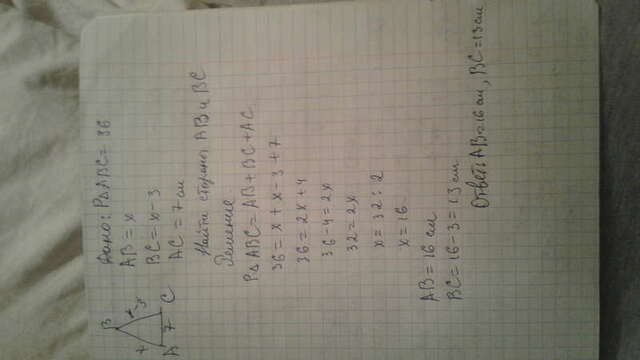 Дано: P△ABC = 36
AB = x
BC = x - 3
AC = 7 см
Найти стороны AB и BC
Решение
P△ABC = AB + BC + AC
36 = x + x - 3 + 7
36 = 2x + 4
36 - 4 = 2x
32 = 2x
x = 32 : 2
x = 16
AB = 16 см
BC = 16 - 3 = 13 см
Ответ: AB = 16 см, BC = 13 см
B
A 7 C